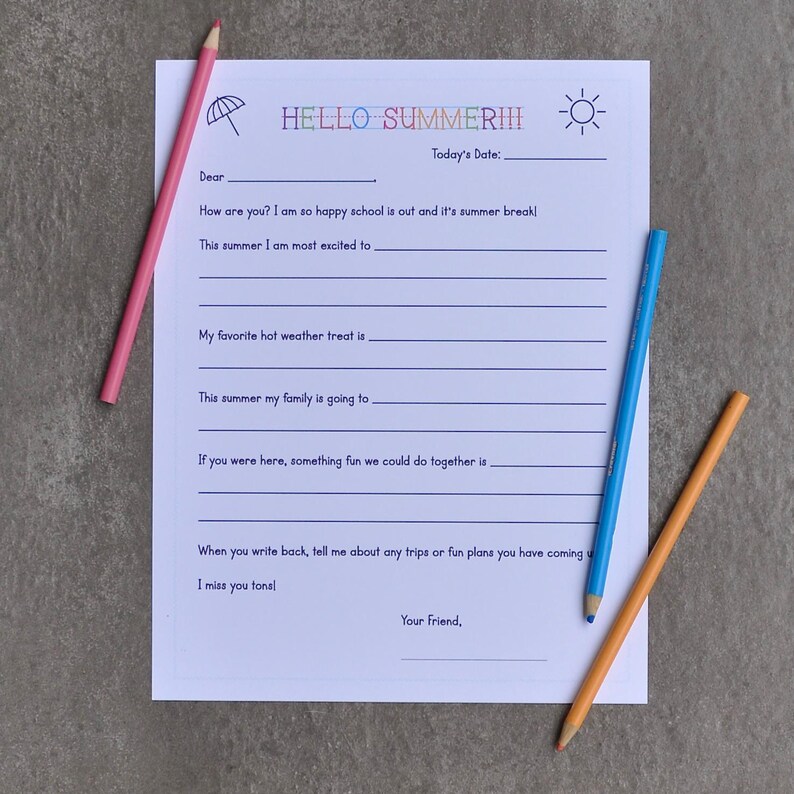 HELLO SUMMER!!!
Today's Date: ____________
Dear ____________________,
How are you? I am so happy school is out and it's summer break!
This summer I am most excited to ____________________
My favorite hot weather treat is ____________________
This summer my family is going to ____________________
If you were here, something fun we could do together is ____________________
When you write back, tell me about any trips or fun plans you have coming
I miss you tons!
Your Friend,